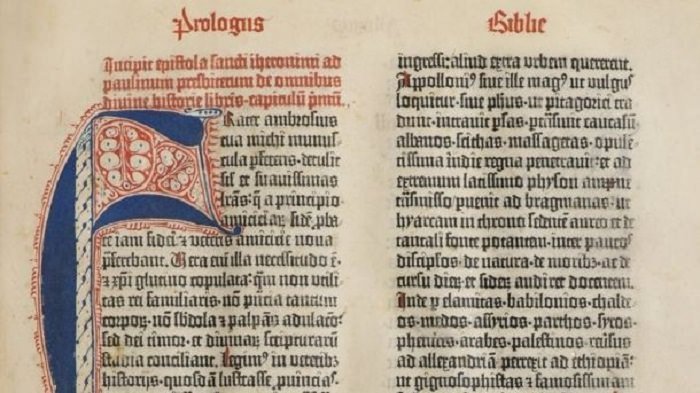 Prologus
Biblie
Incipit epistola sancti iheronimi ad
paulinum presbiterum de omnibus
divine historie libris· capitulū pmū.
Frater ambrosius
tua michi munus-
cula pferens· detulit
sil et suavissimas
lrās: q̄ a principio
amiciciar̄· fidē pba-
te iam fidei ⁊ veteris amicicie nova
pferebant. Vera eni illa necessitudo ē·
⁊ xpi glutino copulata: qm̄ non vtili-
tas rei familiaris· nō pñcia tantum
corporꝝ· nō sbdola ⁊ palpās adulacō:
sed dei timor· et divinaꝝ scripturarū
studia conciliant. Legimꝰ in veteribꝫ
historijs· quosdā lustrasse, ꝓuincias·
ingressi: aliud extra vrbem quererent.
Apolloniꝰ sive ille magꝰ ut vulgꝰ
loquitur· sive phūs· ut pitagorici tra-
dunt· intravit psas· ptrāsivit caucasū
albanos· scithas· massagetas· opulē-
tissima indie regna penetravit: et ad
extremum latissimo physon amne
trāsmisso puenit ad bragmanas: ut
hyarcam in throno sedentē aureo et de
tantali fonte potantem· inter paucos
discipłos· de natura· de moribꝫ ac de
cursu dieꝝ et sideꝝ audiret docentem.
Inde p elamitas· babilonios· chalde-
os· medos· assyrios· parthos· syros·
phenices· arabes· palestinos· reūsus
ad allexandriā: perrexit ad ethiopiā:
ut gignosophistas ⁊ famosissimam